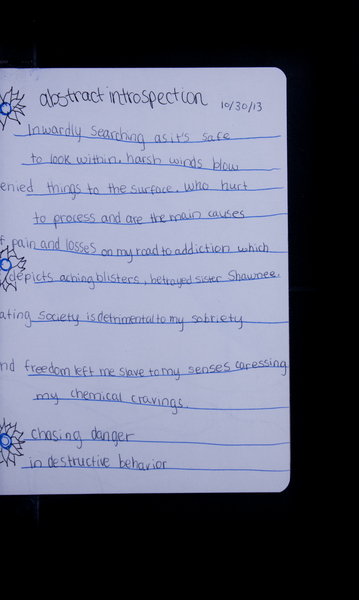 abstract introspection 10/30/13
Inwardly searching as it's safe
to look within. harsh winds blow
enied things to the surface. who hurt
to process and are the main causes
f pain and losses on my road to addiction which
depicts aching blisters, betrayed sister Shawnee.
ating society is detrimental to my sobriety
nd freedom left me slave to my senses caressing
my chemical cravings.
chasing danger
in destructive behavior